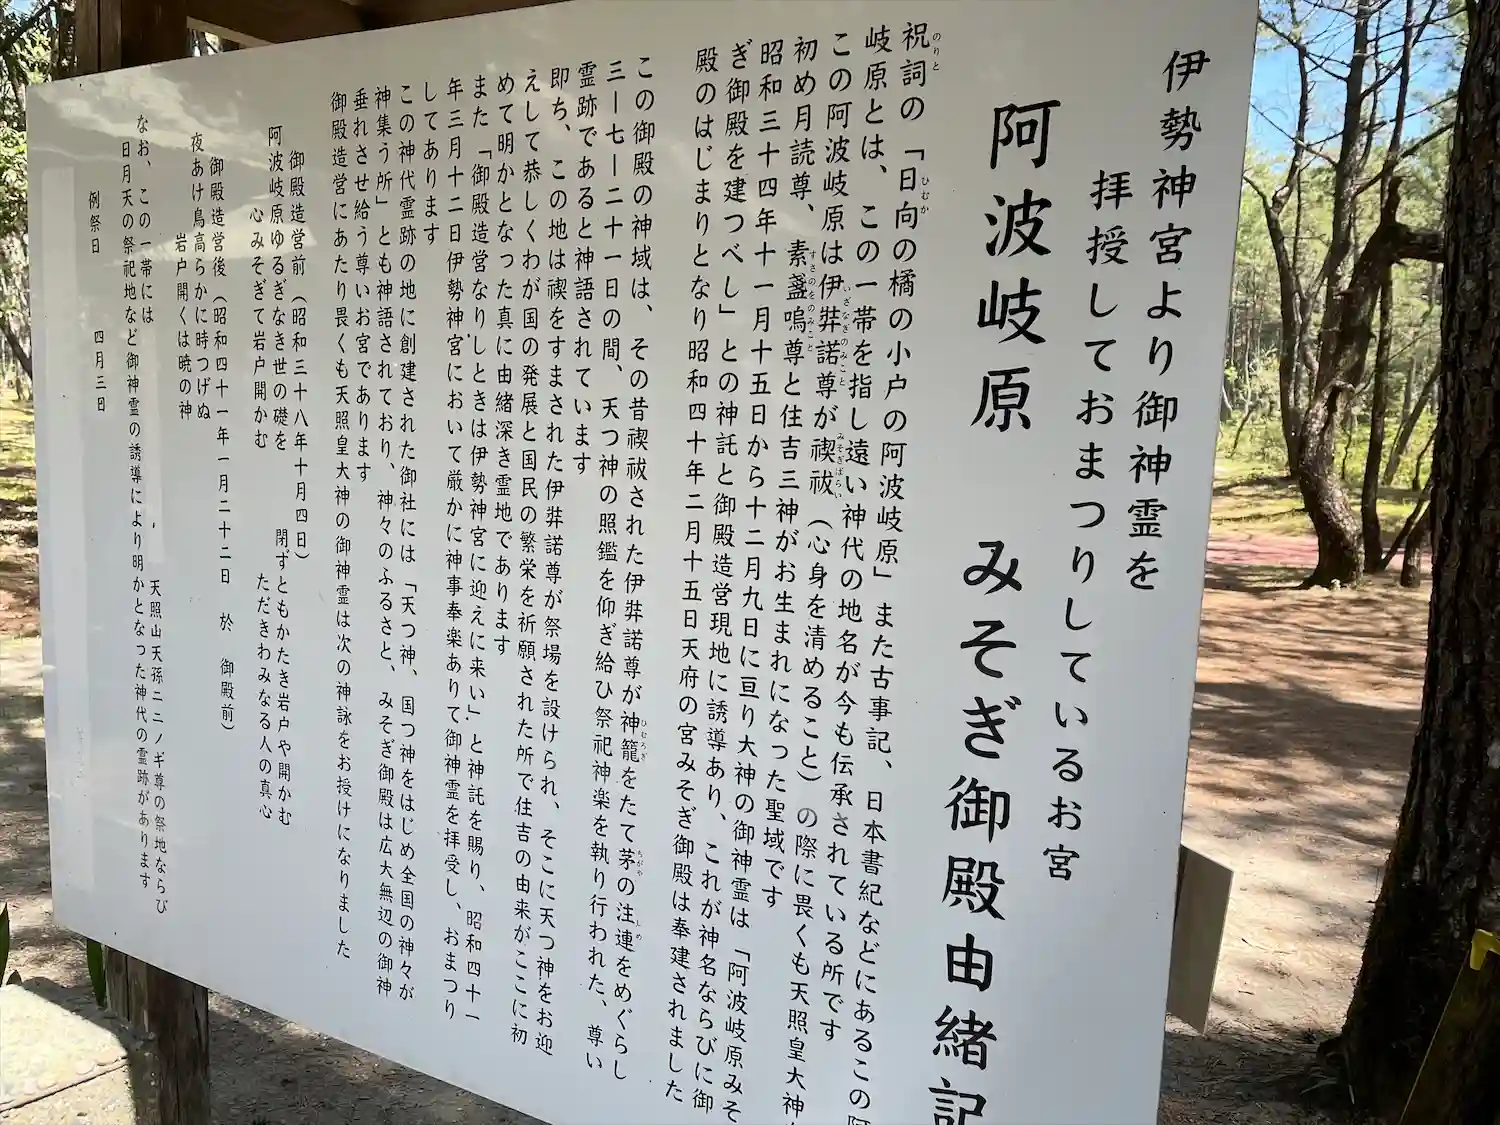 伊勢神宮より御神霊を
拝授しておまつりしているお宮
阿波岐原 みそぎ御殿由緒記
祝詞の「日向の橘の小戸の阿波岐原」また古事記、日本書紀などにあるこの阿
岐原とは、この一帯を指し遠い神代の地名が今も伝承されている所です
この阿波岐原は伊弉諾尊が禊祓(心身を清めること)の際に畏くも天照皇大神
初め月読尊、素盞嗚尊と住吉三神がお生まれになった聖域です
昭和三十四年十一月十五日から十二月九日に亘り大神の御神霊は「阿波岐原みそ
ぎ御殿を建つべし」との神託と御殿造営現地に誘導あり、これが神名ならびに御
殿のはじまりとなり昭和四十年二月十五日天府の宮みそぎ御殿は奉建されました
この御殿の神域は、その昔禊祓された伊弉諾尊が神籠をたて茅の注連をめぐらし
三―七―二十一日の間、天つ神の照鑑を仰ぎ給ひ祭祀神楽を執り行われた、尊い
霊跡であると神語されています
即ち、この地は禊をすまされた伊弉諾尊が祭場を設けられ、そこに天つ神をお迎
えして恭しくわが国の発展と国民の繁栄を祈願された所で住吉の由来がここに初
めて明かとなった真に由緒深き霊地であります
また「御殿造営なりしときは伊勢神宮に迎えに来い」と神託を賜り、昭和四十一
年三月十二日伊勢神宮において厳かに神事奉楽ありて御神霊を拝受し、おまつり
してあります
この神代霊跡の地に創建された御社には「天つ神、国つ神をはじめ全国の神々が
神集う所」とも神語されており、神々のふるさと、みそぎ御殿は広大無辺の御神
垂れさせ給う尊いお宮であります
御殿造営にあたり畏くも天照皇大神の御神霊は次の神詠をお授けになりました
御殿造営前(昭和三十八年十月四日)
阿波岐原ゆるぎなき世の礎を 閉ずともかたき岩戸や開かむ
心みそぎて岩戸開かむ ただきわみなる人の真心
御殿造営後(昭和四十一年一月二十二日 於 御殿前)
夜あけ鳥高らかに時つげぬ
岩戸開くは暁の神
なお、この一帯には 天照山天孫ニニノギ尊の祭地ならび
日月天の祭祀地など御神霊の誘導により明かとなった神代の霊跡があります
例祭日 四月三日